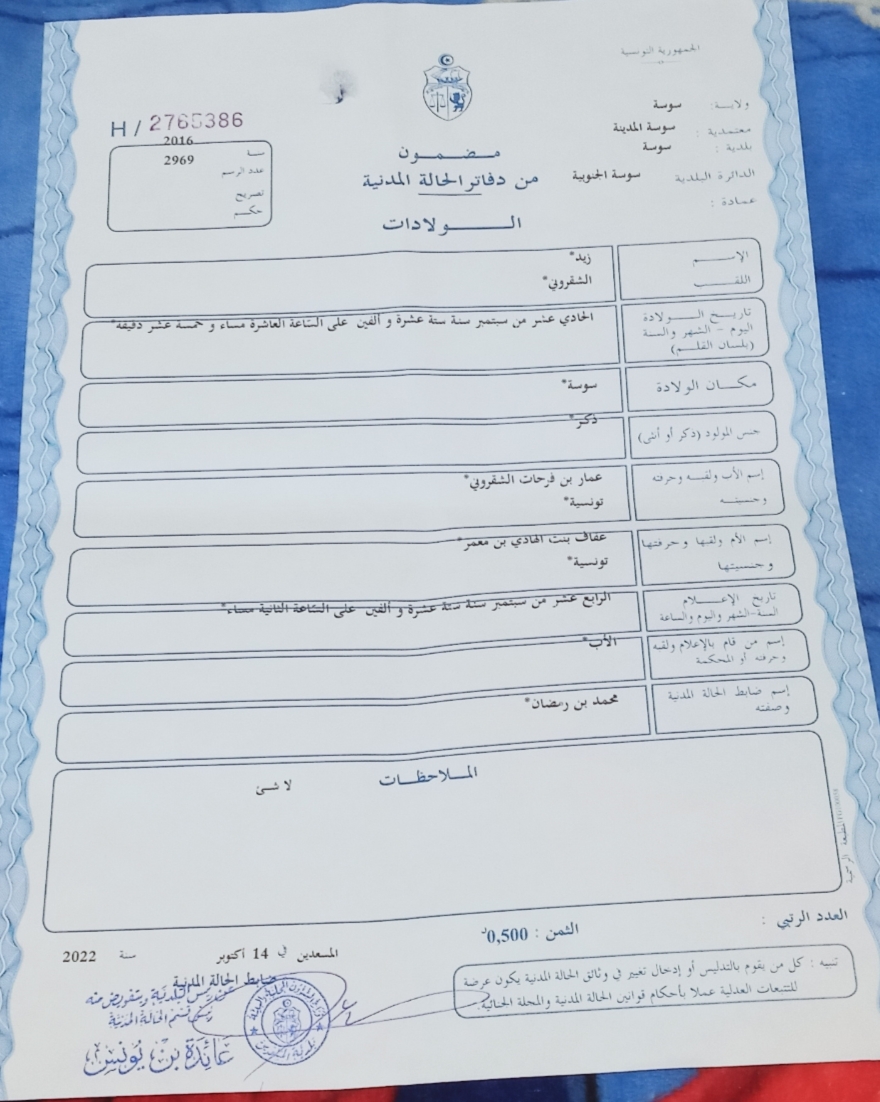 الجمهورية التونسية
ولاية: سوسة
معتمدية: سوسة المدينة
بلدية: سوسة
الدائرة البلدية سوسة الجنوبية
عمادة:
H / 2765386
سنة 2016
عدد الرسم 2969
تصريح
حكم
مضمون
من دفاتر الحالة المدنية
الولادات
الإسم زيد*
اللقب الشقروني*
تاريخ الولادة الحادي عشر من سبتمبر سنة ستة عشرة و ألفين على السّاعة العاشرة مساء و خمسة عشر دقيقة*
اليوم - الشهر والسنة
(بلسان القلم)
مكان الولادة سوسة*
جنس المولود (ذكر أو أنثى) ذكر*
إسم الأب ولقبه وحرفته عمار بن فرحات الشقروني*
وجنسيته تونسية*
إسم الأم ولقبها وحرفتها عفاف بنت الهادي بن معمر*
وجنسيتها تونسية*
تاريخ الإعلام الرابع عشر من سبتمبر سنة ستة عشرة و ألفين على السّاعة الثانية مساء*
السنة-الشهر واليوم والساعة
إسم من قام بالإعلام ولقبه الأب*
وحرفته أو المحكمة
إسم ضابط الحالة المدنية محمد بن رمضان*
وصفته
الملاحظات
لا شئ
المطبعة الرسمية
العدد الرتبي :
الثمن : 0,500د
المسعدين في 14 أكتوبر سنة 2022
ضابط الحالة المدنية
عن رئيس البلدية وبتفويض منه
رئيس قسم الحالة المدنية
عائدة بن يونس
تنبيه : كل من يقوم بالتدليس أو إدخال تغيير في وثائق الحالة المدنية يكون عرضة
للتتبعات العدلية عملا بأحكام قوانين الحالة المدنية والمجلة الجنائية.